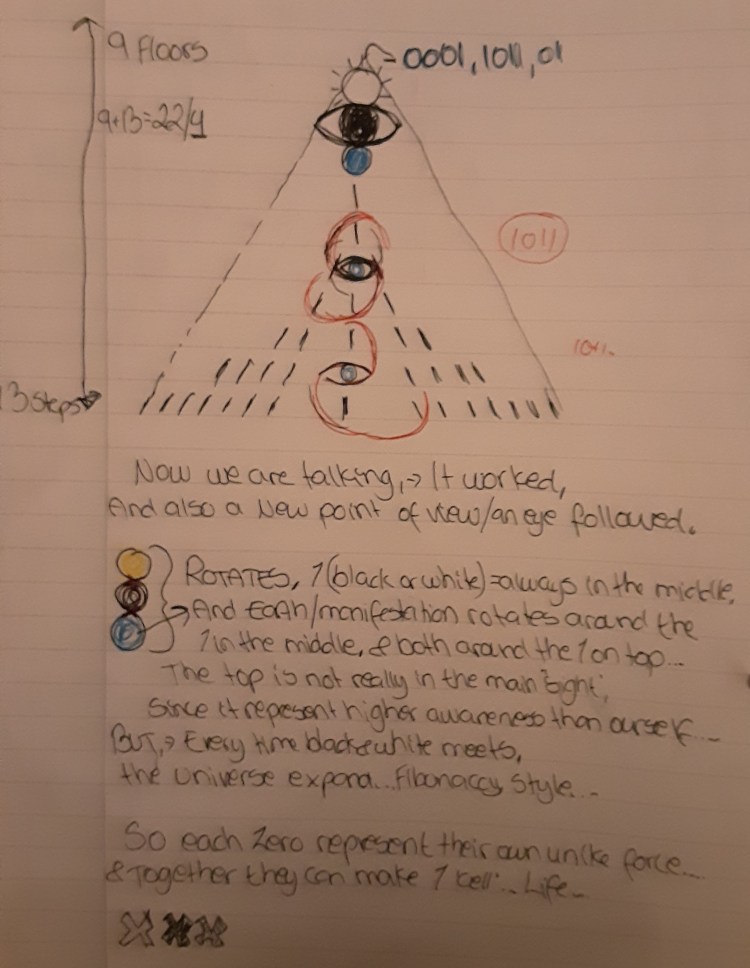 9 Floors
0001, 1011, 01
9+13=22/4
1011
1011.
13 steps
Now we are talking, → It worked,
And also a New point of view/an eye followed.
ROTATES, 1 (black or white)=always in the middle.
And Earth/manifestation rotates around the
1 in the middle, & both around the 1 on top...
The top is not really in the main 'sight',
Since it repesent higher awareness than ourself...
BUT, → Every time black&white meets,
the Universe expand... Fibonaccy Style...
So each Zero represent their own unike force...
& Together they can make 1 cell... Life...
XXX